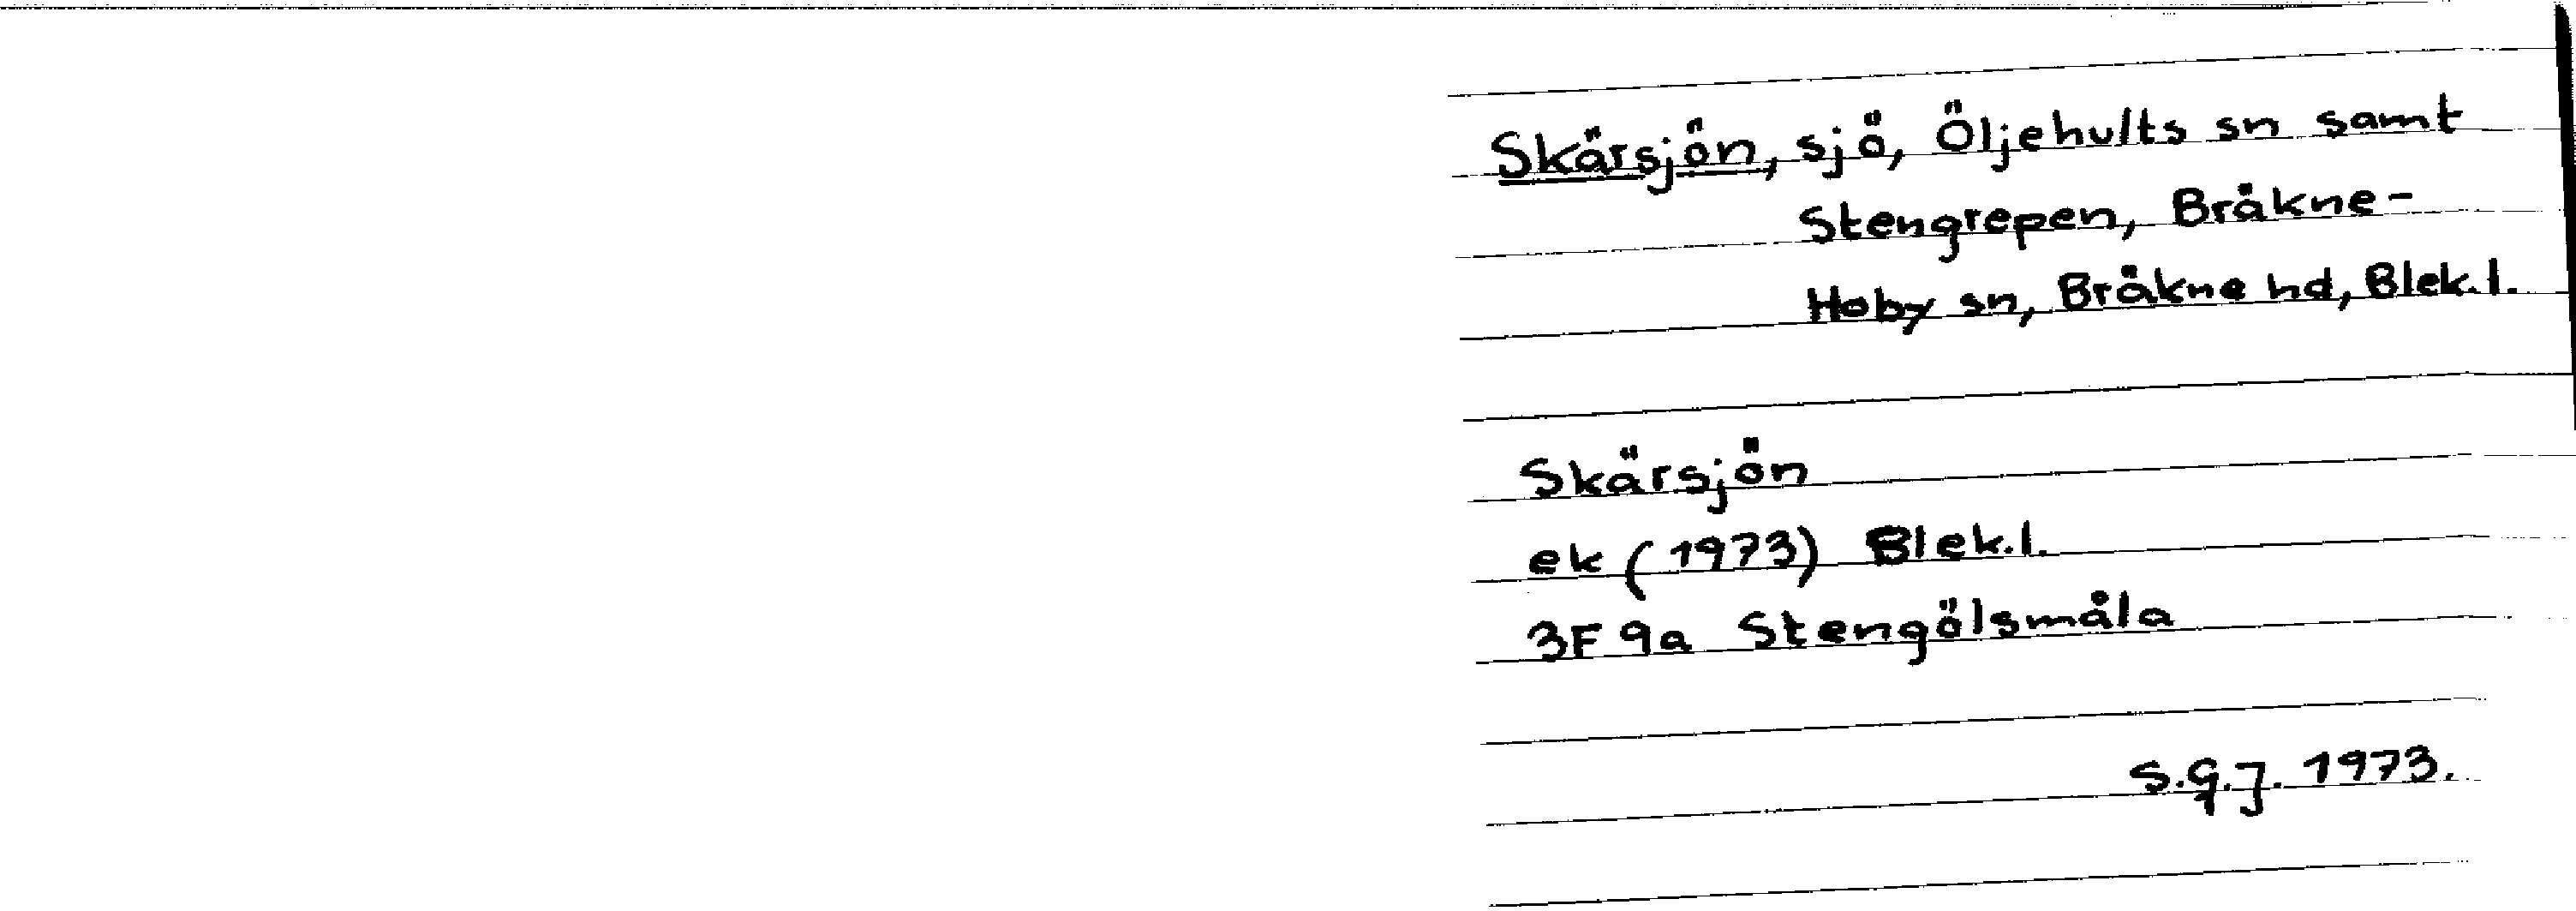 Skärsjön, sjö, Öljehults sn samt
Stengrepen, Bräkne-
Hoby sn, Bräkne hd, Blek.l.
Skärsjön
ek (1973) Blek.l.
3F 9a Stengölsmåla
S.G.J. 1973.